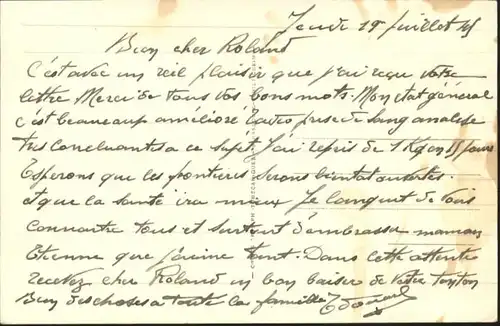 Jeudi 19 juillet 45
Bien cher Roland
C'est avec un réel plaisir que j'ai reçu votre
lettre Merci de tous vos bons mots. Mon etat général
c'est beaucoup amélioré la prise de sang analyse
tres concluantes a ce sujet. J'ai repris de 1 Kg en 15 jours
Esperons que les frontieres serons bientot ouvertes.
et que la santé ira mieux Je languit de vous
connaitre tous et surtout d'embrasser maman
Etienne que j'aime tant. Dans cette attente
recevez cher Roland un bon baiser de votre tonton
Bien des choses a toute la famille Edouard